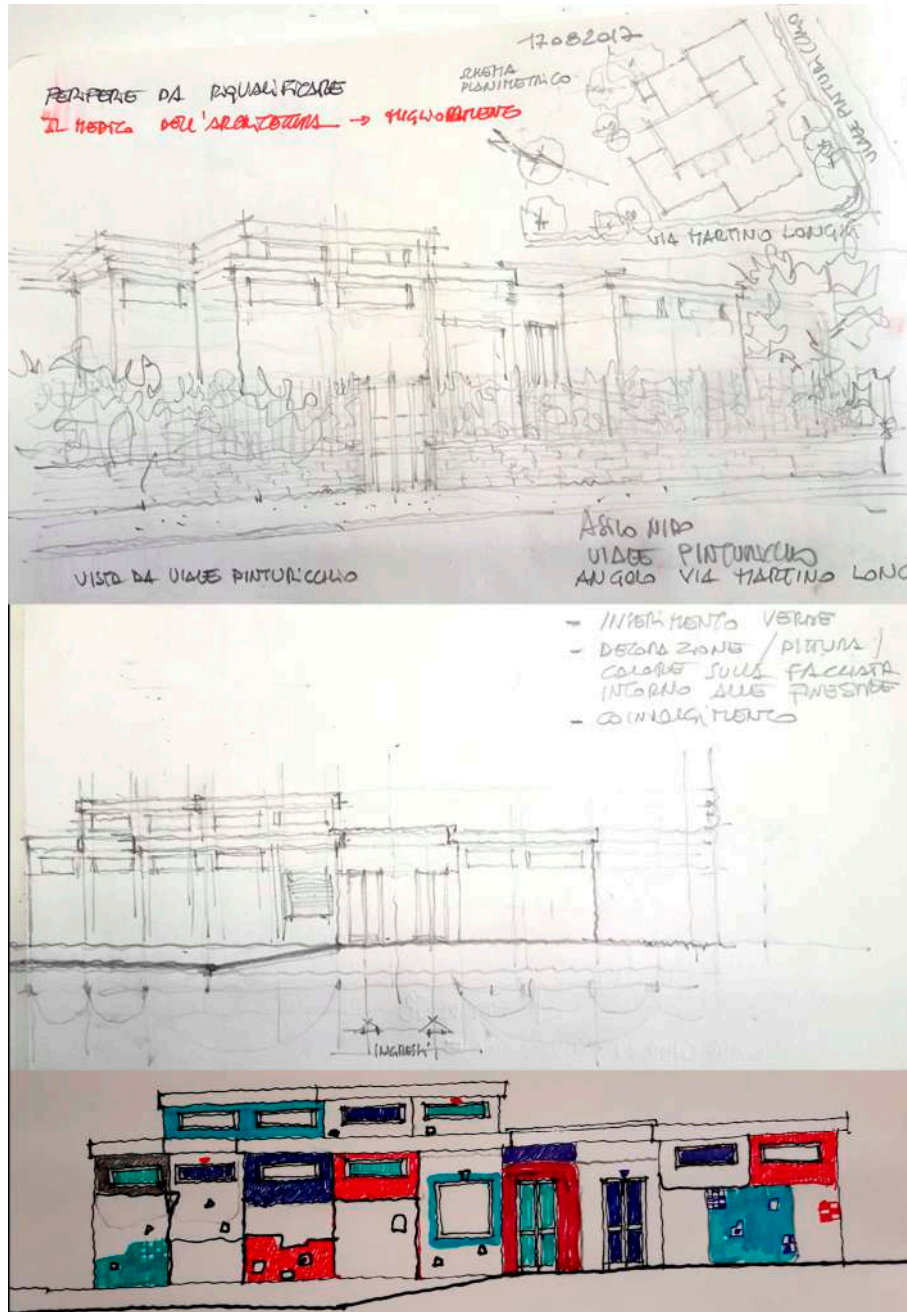 17082017
PERIFERIE DA RIQUALIFICARE
IL MEDICO DELL'ARCHITETTURA → MIGLIORAMENTO
SCHEMA
PLANIMETRICO
VIALE PINTURICCHIO
VIA MARTINO LONGHI
VISTA DA VIALE PINTURICCHIO
ASILO NIDO
VIALE PINTURICCHIO
ANGOLO VIA MARTINO LONG
- INSERIMENTO VERDE
- DECORAZIONE / PITTURA /
COLORE SULLA FACCIATA
INTORNO ALLE FINESTRE
- COINVOLGIMENTO
INGRESSI